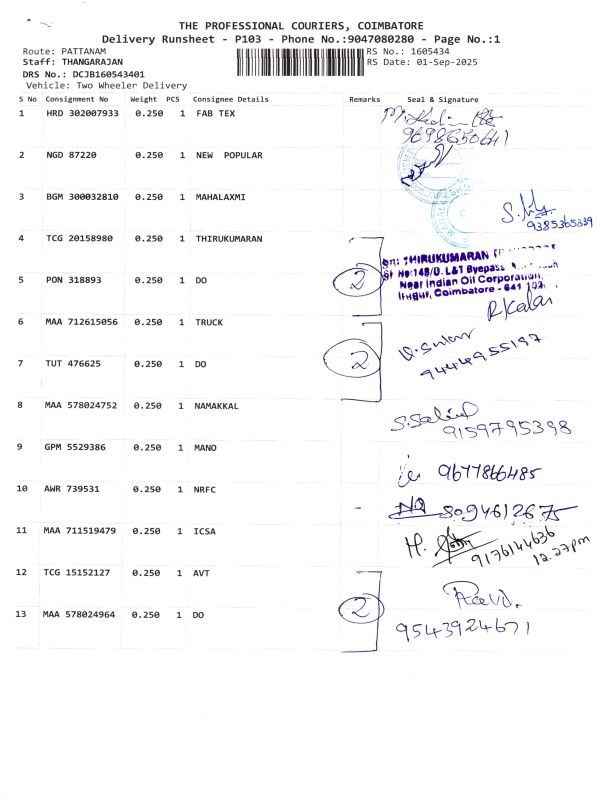 THE PROFESSIONAL COURIERS, COIMBATORE
Delivery Runsheet - P103 - Phone No.:9047080280 - Page No.:1
Route: PATTANAM RS No.: 1605434
Staff: THANGARAJAN RS Date: 01-Sep-2025
DRS No.: DCJB160543401
Vehicle: Two Wheeler Delivery
S No Consignment No Weight PCS Consignee Details Remarks Seal & Signature
1 HRD 302007933 0.250 1 FAB TEX
9698650641
2 NGD 87220 0.250 1 NEW POPULAR
3 BGM 300032810 0.250 1 MAHALAXMI
9385365339
4 TCG 20158980 0.250 1 THIRUKUMARAN
THIRUKUMARAN
SF No:148/D. L&T Byepass
5 PON 318893 0.250 1 DO 2 Near Indian Oil Corporation,
Irugur, Coimbatore - 641 103.
R Kalai
6 MAA 712615056 0.250 1 TRUCK
7 TUT 476625 0.250 1 DO 2 9444955197
8 MAA 578024752 0.250 1 NAMAKKAL
9159795398
9 GPM 5529386 0.250 1 MANO
9677866485
10 AWR 739531 0.250 1 NRFC
8094612675
11 MAA 711519479 0.250 1 ICSA
9176144636
12.27pm
12 TCG 15152127 0.250 1 AVT
13 MAA 578024964 0.250 1 DO 2
9543924671